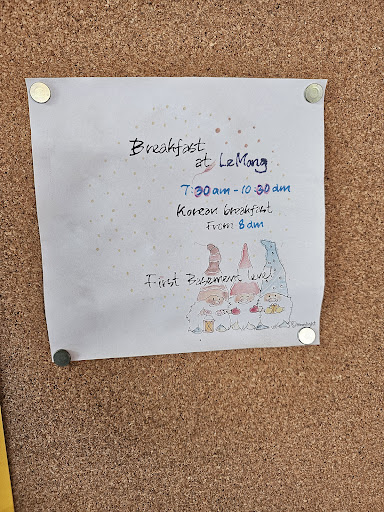 Breakfast
at LeMong
7:30 am - 10:30 am
Korean breakfast
From 8 am
First Basement level